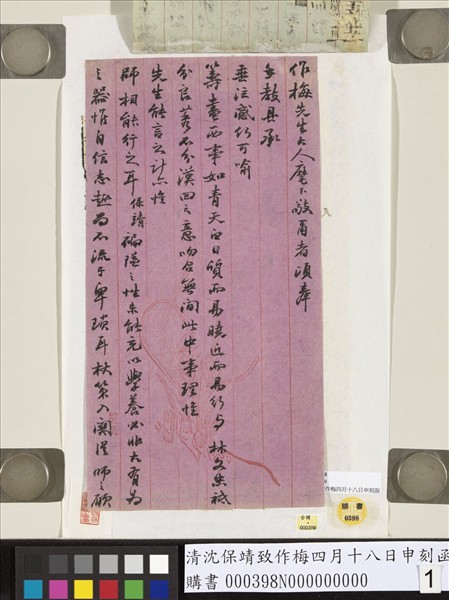 作梅先生大人麾下敬再者頃奉
手教具承
垂注感何可喻
籌畫兩事如青天白日質而易曉近而易行与林文忠祗
分良莠不分漢回之意吻合無間此中事理惟
先生能言之計亦惟
師相能行之耳保靖褊隘之性未能充以學養必非大有為
之器惟自信志趣尚不流于卑瑣耳杖策入關從師之願
作梅四月十八日申刻函
購書
0398
000398
清沈保靖致作梅四月十八日申刻函
購書 000398N000000000
1